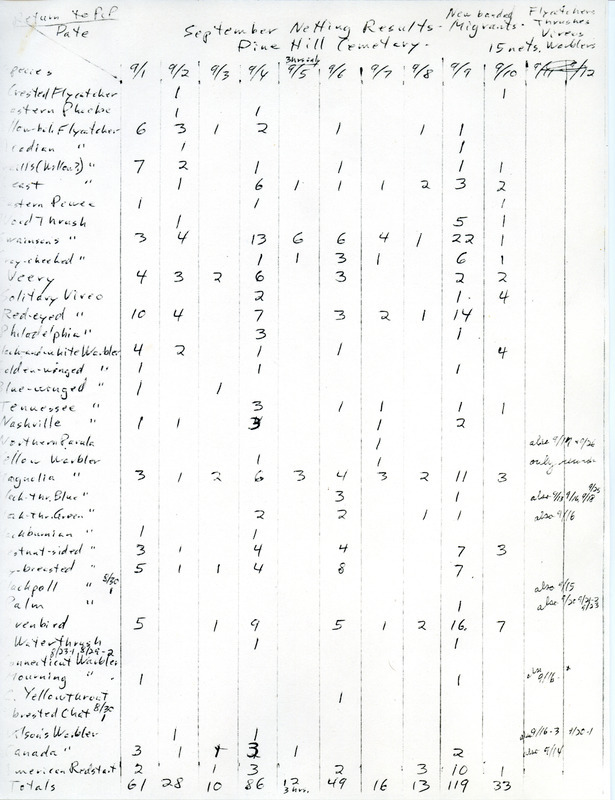 Return to P&P
Date
September Netting Results - Pine Hill Cemetery.
New banded Migrants -
15 nets.
Flycatchers
Thrushes
Vireos
Warblers
3hrs only
pecies 9/1 9/2 9/3 9/4 9/5 9/6 9/7 9/8 9/9 9/10 9/11 9/12
Crested Flycatcher 1 1
astern Phoebe 1 1
llow-bel. Flycatcher 6 3 1 2 1 1 1
cadian " 1 1
aills (Willow?) " 7 2 1 1 1 1
east " 1 6 1 1 1 2 3 2
astern Pewee 1 1 1
ood Thrush 1 5 1
wainsons " 3 4 13 6 6 4 1 22 1
ray-cheeked " 1 1 3 1 6 1
Veery 4 3 2 6 3 2 2
Solitary Vireo 2 1 4
Red-eyed " 10 4 7 3 2 1 14
Philadelphia " 3 1
lack-and-white Warbler 4 2 1 1 4
olden-winged " 1 1 1
Blue-winged " 1 1
Tennessee " 3 1 1 1 1
Nashville " 1 1 3 1 2
Northern Parula 1 also 9/17 + 9/26
ellow Warbler 1 1 only
agnolia " 3 1 2 6 3 4 3 2 11 3
lack-thr. Blue " 3 1 also 9/13 9/16 9/18 9/25
ack-thr. Green " 2 2 1 1 also 9/16
ackburnian " 1 1
estnut-sided " 3 1 4 4 7 3
y-breasted " 5 1 1 4 8 7
lackpoll " 8/30 1 also 9/15
Palm " 1 also 9/20 9/21-2 9/23
venbird 5 1 9 5 1 2 16 7
Waterthrush 1 1
8/23-1, 8/29-2
onnecticut Warbler
Mourning " 1 1 also 9/16-
. Yellowthroat 1
brested Chat 8/30 1
ilson's Warbler 1 1 also 9/16-3 9/20-1
anada " 3 1 1 3 1 2 also 9/14
merican Redstart 2 1 3 2 3 10 1
Totals 61 28 10 86 12 49 16 13 119 33
3hrs.